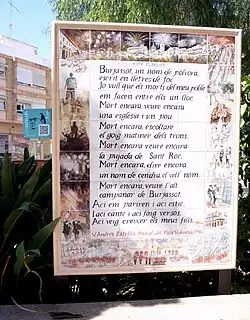 Burjassot, un nom de pólvora,
escrit en lletres de foc.
Jo vull que els morts del meu poble
em facen entre ells un lloc.
Mort encara, veure encara
una església i un pou.
Mort encara, escoltare
el goig matiner dels trons.
Mort encara veure encara
la pujada de Sant Roc.
Mort encara, dire encara
un nom de cendra, el vell nom.
Mort encara, veure l'alt
campanar de Burjassot.
Ací em pariren i ací estic.
I ací cante i ací faig versos.
Ací veig créixer els meus fills.
V. Andrés Estellés, Mural del País Valencià